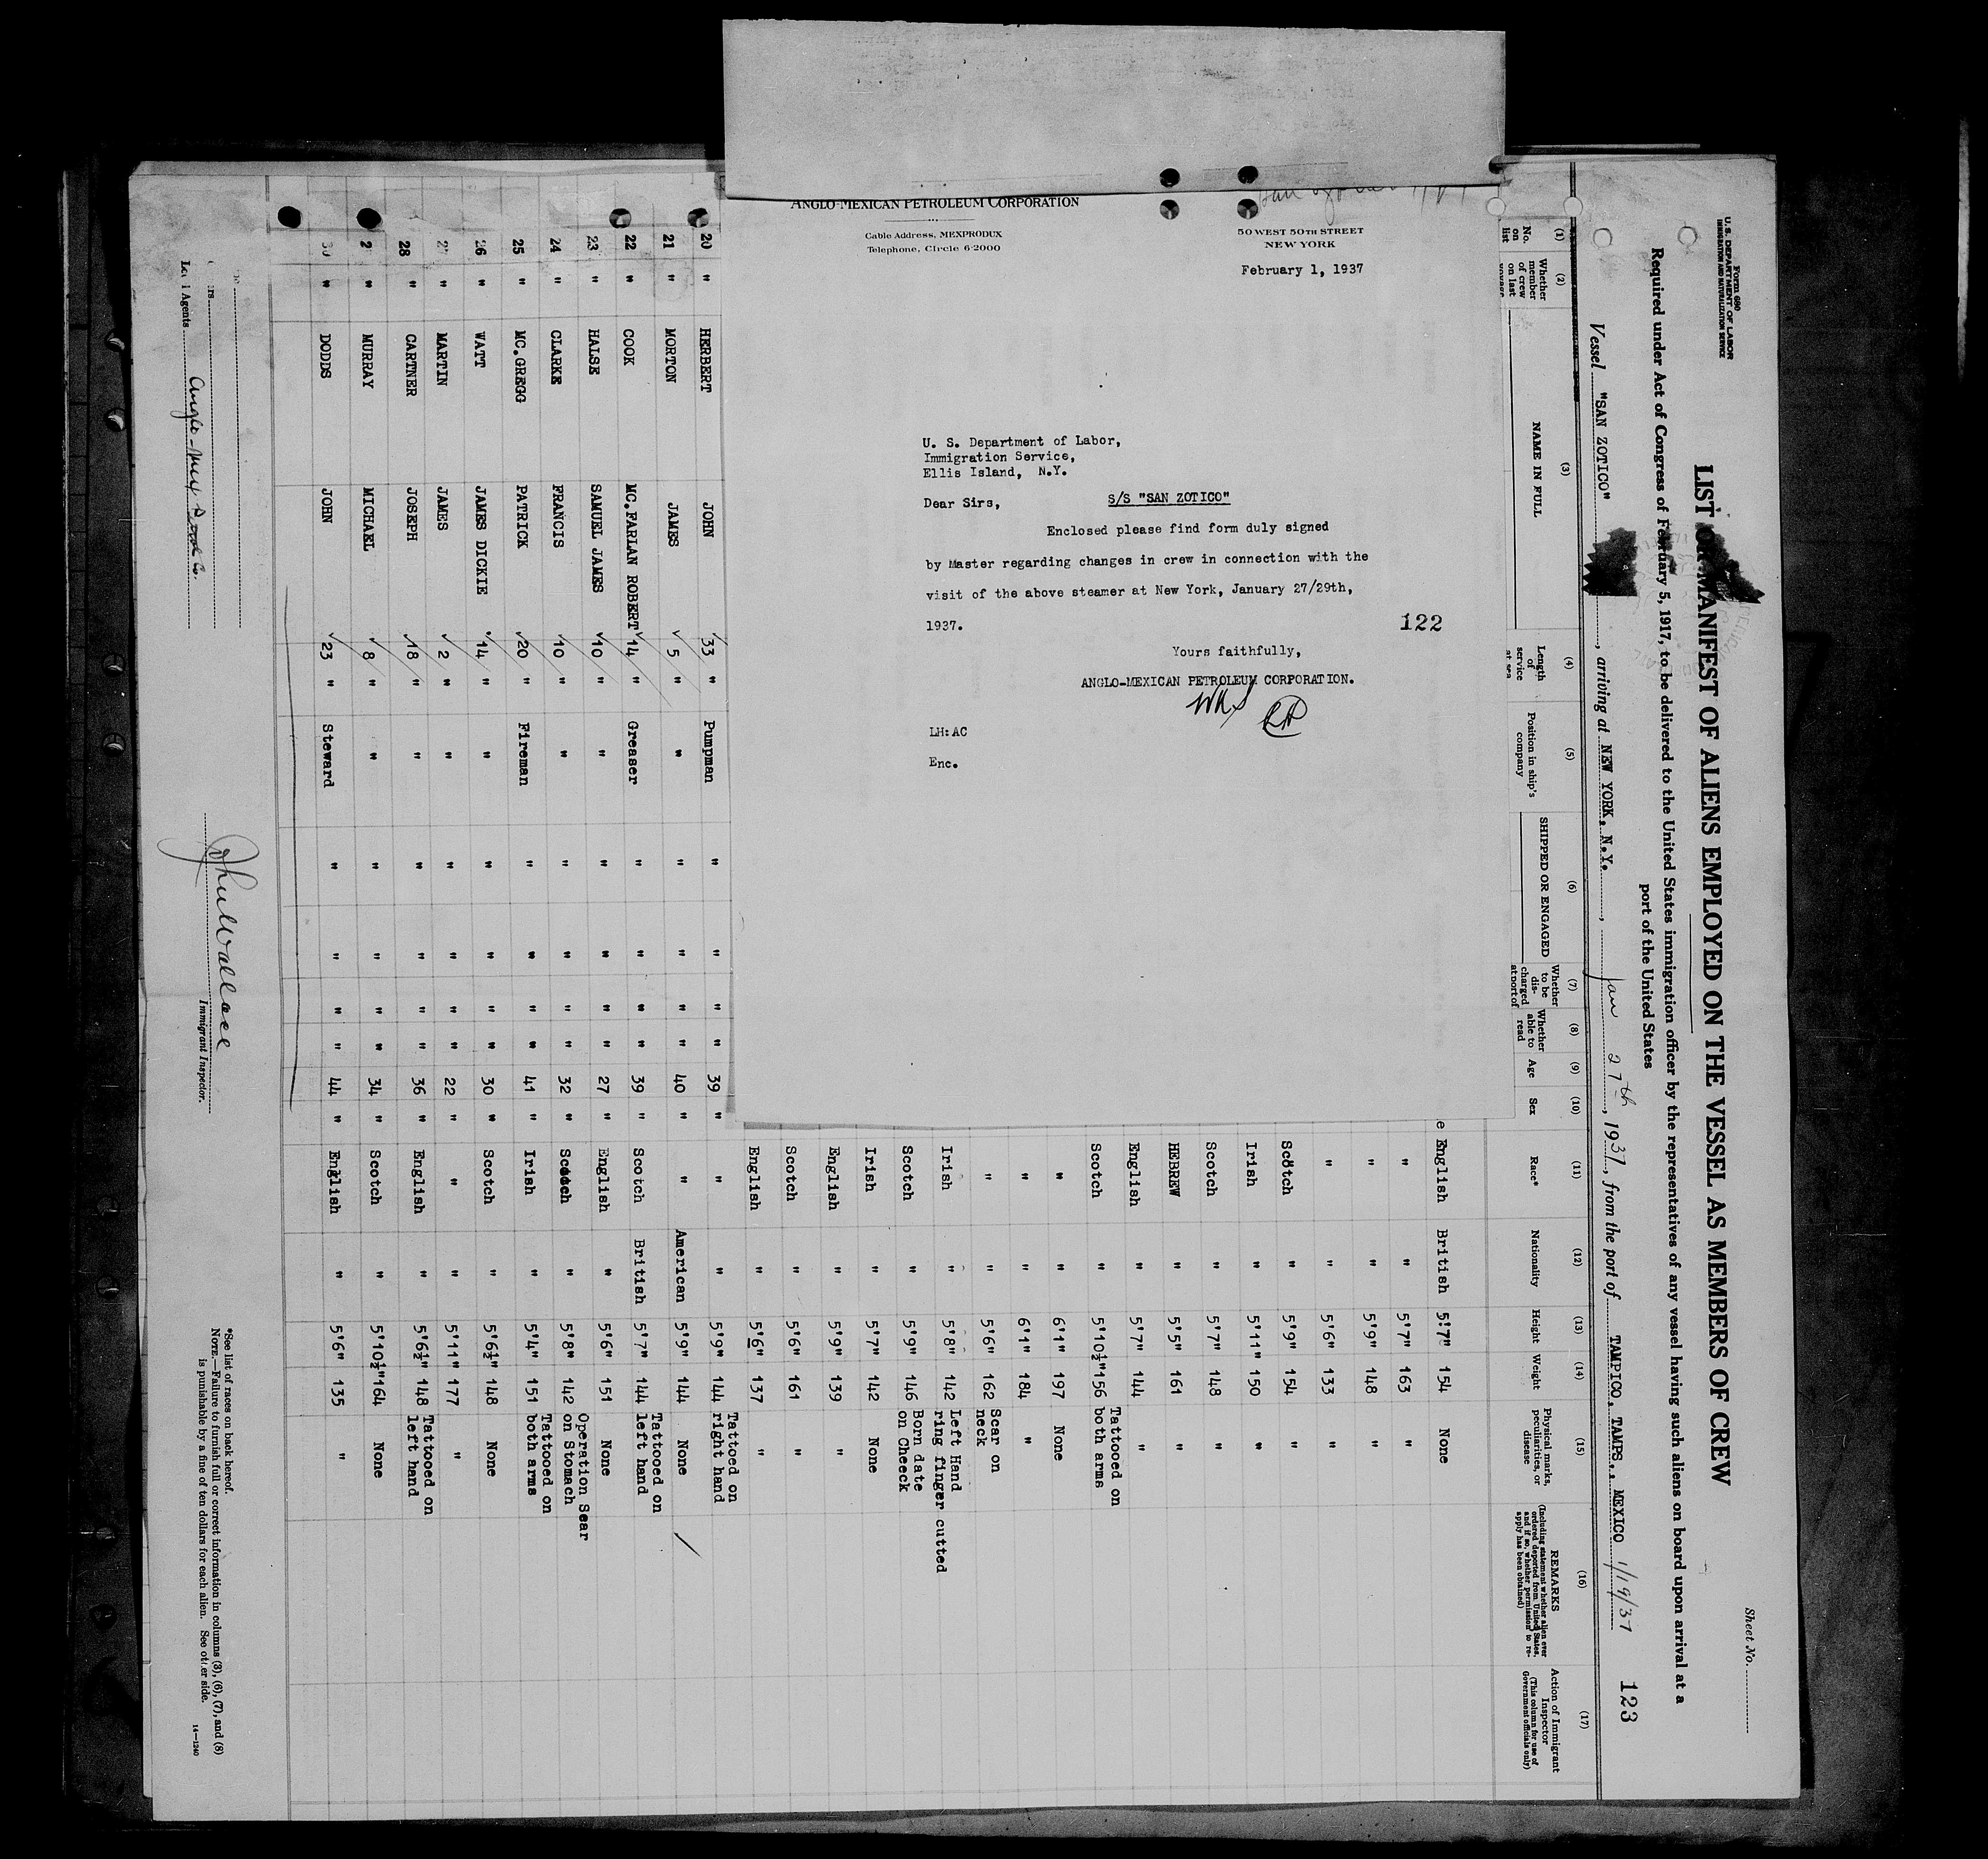 ANGLO-MEXICAN PETROLEUM CORPORATION
Cable Address, MEXPRODUX
Telephone, Circle 6-2000
50 WEST 50TH STREET
NEW YORK
February 1, 1937
U. S. Department of Labor,
Immigration Service,
Ellis Island, N.Y.
Dear Sirs,
S/S "SAN ZOTICO"
Enclosed please find form duly signed
by Master regarding changes in crew in connection with the
visit of the above steamer at New York, January 27/29th,
1937.
122
Yours faithfully,
ANGLO-MEXICAN PETROLEUM CORPORATION.
LH:AC
Enc.
Form 680
U. S. DEPARTMENT OF LABOR
IMMIGRATION AND NATURALIZATION SERVICE
Sheet No.
LIST OR MANIFEST OF ALIENS EMPLOYED ON THE VESSEL AS MEMBERS OF CREW
Required under Act of Congress of February 5, 1917, to be delivered to the United States immigration officer by the representatives of any vessel having such aliens on board upon arrival at a
port of the United States
Vessel "SAN ZOTICO", arriving at NEW YORK, N.Y., Jan 27th, 1937, from the port of TAMPICO, TAMPS., MEXICO 1/19/37
123
(1) (2) (3) (4) (5) (6) (7) (8) (9) (10) (11) (12) (13) (14) (15) (16) (17)
No. on list
Whether member of crew on last
NAME IN FULL
Length of service
Position in ship's company
SHIPPED OR ENGAGED
Whether to be discharged at port of
Whether able to read
Age
Sex
Race*
Nationality
Height
Weight
Physical marks, peculiarities, or disease
REMARKS
(Including statement whether alien ever ordered deported from United States, and if so, whether permission to reapply has been obtained)
Action of Immigrant Inspector
(This column for use of Government officials only)
e English British 5'7" 154 None
" " 5'7" 163 "
" " 5'9" 148 "
" " 5'6" 133 "
Scotch " 5'9" 154 "
Irish " 5'11" 150 "
Scotch " 5'7" 148 "
HEBREW " 5'5" 161 "
English " 5'7" 144 "
Scotch " 5'10½" 156 Tattooed on both arms
" " 6'1" 197 None
" " 6'1" 184 "
" " 5'6" 162 Scar on neck
Irish " 5'8" 142 Left Hand ring finger cutted
Scotch " 5'9" 146 Born date on Cheeck
Irish " 5'7" 142 None
English " 5'9" 139 "
Scotch " 5'6" 161 "
English " 5'6" 137 "
20 " HERBERT JOHN 33 " Pumpman " " " " 39 " " " 5'9" 144 Tattoed on right hand
21 " MORTON JAMES 5 " " " " " " 40 " " American 5'9" 144 None
22 " COOK MC.FARLAN ROBERT 14 " Greaser " " " " 39 " Scotch British 5'7" 144 Tattooed on left hand
23 " HALSE SAMUEL JAMES 10 " " " " " " 27 " English " 5'6" 151 None
24 " CLARKE FRANCIS 10 " " " " " " 32 " Scotch " 5'8" 142 Operation Sear on Stomach
25 " MC.GREGG PATRICK 20 " Fireman " " " " 41 " Irish " 5'4" 151 Tattooed on both arms
26 " WATT JAMES DICKIE 14 " " " " " " 30 " Scotch " 5'6½" 148 None
27 " MARTIN JAMES 2 " " " " " " 22 " " " 5'11" 177 "
28 " CARTNER JOSEPH 18 " " " " " " 36 " English " 5'6½" 148 Tattooed on left hand
2 " MURRAY MICHAEL 8 " " " " " " 34 " Scotch " 5'10½" 164 None
30 " DODDS JOHN 23 " Steward " " " " 44 " English " 5'6" 135 "
Agents Anglo-Mex
Immigrant Inspector.
*See list of races on back hereof.
NOTE.—Failure to furnish full or correct information in columns (3), (6), (7), and (8)
is punishable by a fine of ten dollars for each alien. See other side.
14—1240